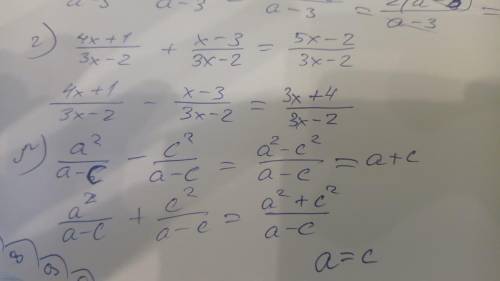 a-3 a-3 a-3 = a-3 =
2) (4x+1)/(3x-2) + (x-3)/(3x-2) = (5x-2)/(3x-2)
(4x+1)/(3x-2) - (x-3)/(3x-2) = (3x+4)/(3x-2)
a²/(a-c) - c²/(a-c) = (a²-c²)/(a-c) = a+c
a²/(a-c) + c²/(a-c) = (a²+c²)/(a-c)
a=c